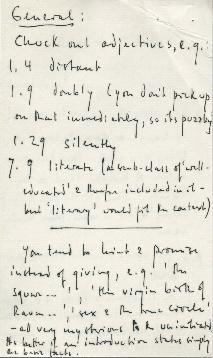 General:
Check out adjectives, e.g.:
1.4 distant
1.9 doubly (you don't pick up
on that immediately, so its puzzling
1.29 silently
7.9 literate (a sub-class of 'well-
educated' & therefore included in it -
but 'literary' would fit the context)
You tend to hint & promise
instead of giving, e.g. 'the
squaw...', 'the virgin birth of
Raven...', 'sex & the bone circle'
- all very mysterious to the uninitiated
the better if an introduction states simply
the basic facts.